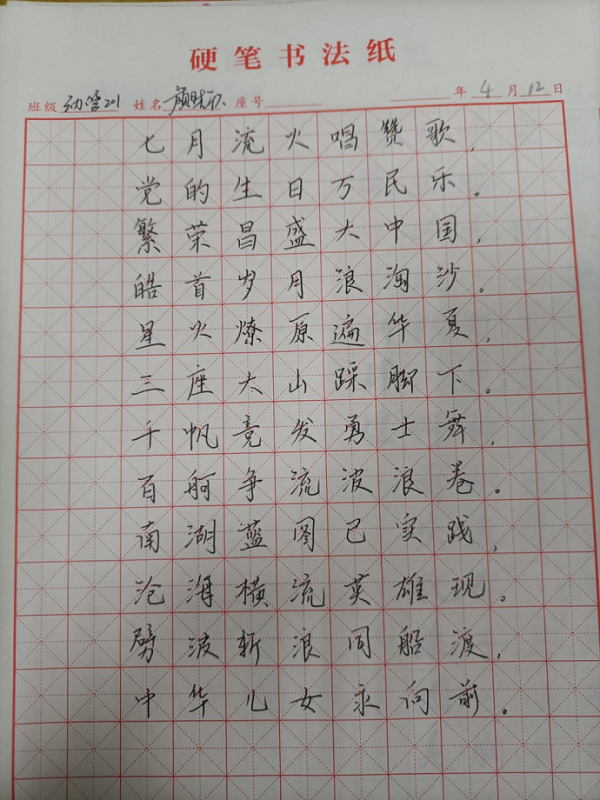 硬笔书法纸
班级 幼管201 姓名 颜 座号 年 4 月 12 日
七月流火唱赞歌，
党的生日万民乐。
繁荣昌盛大中国，
皓首岁月浪淘沙。
星火燎原遍华夏，
三座大山踩脚下。
千帆竞发勇士舞，
百舸争流波浪卷。
南湖蓝图已实践，
沧海横流英雄现。
劈波斩浪同船渡，
中华儿女永向前。